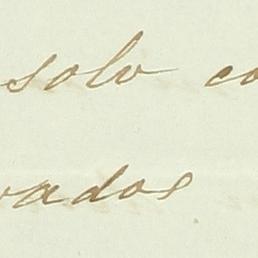 solo co
vados